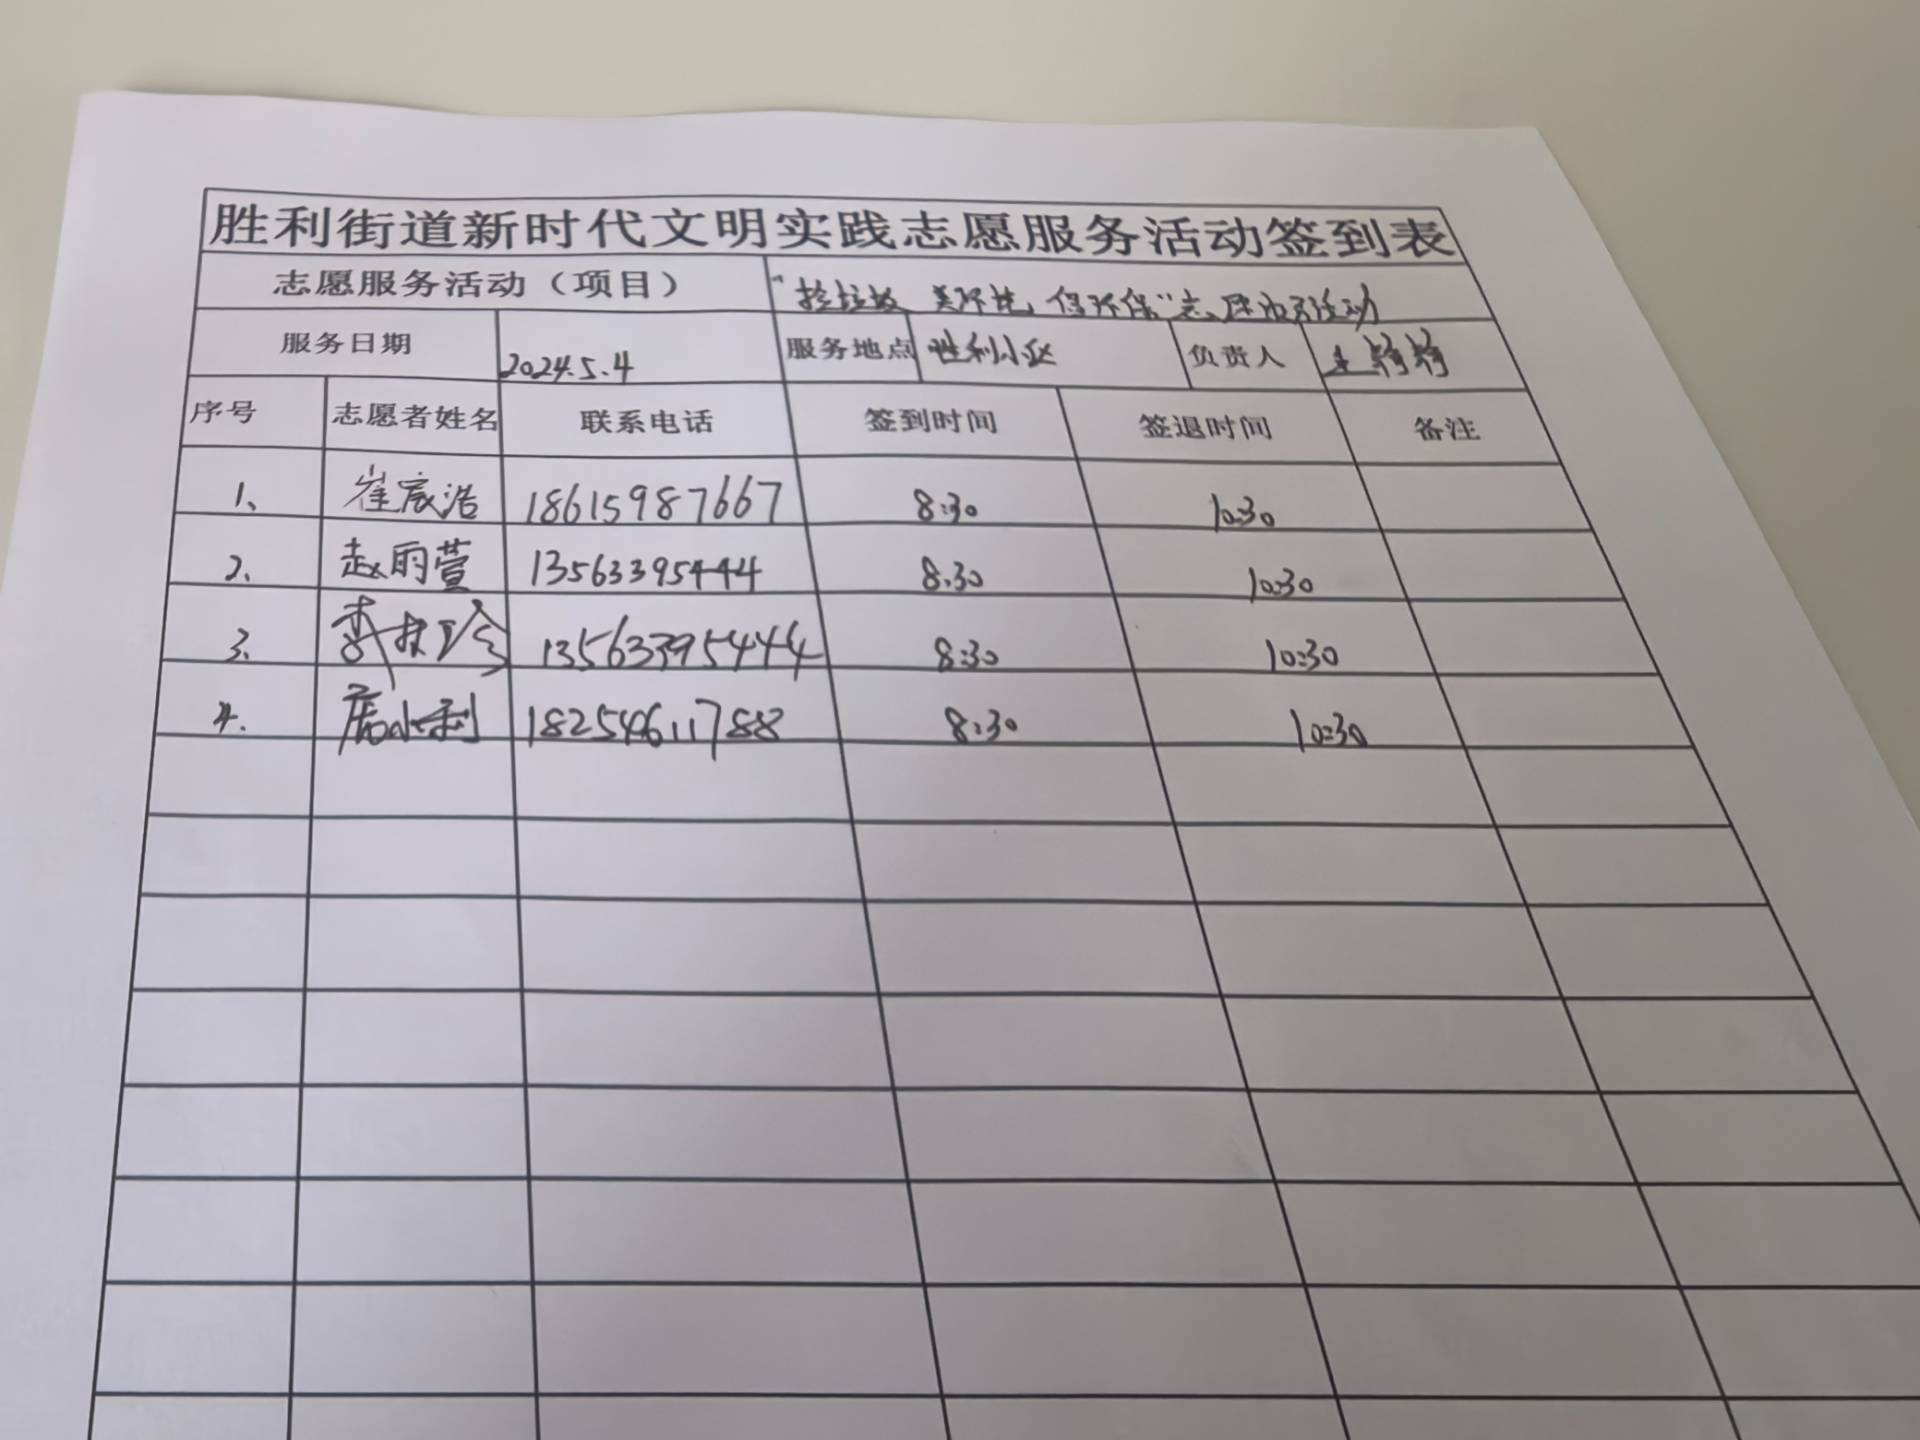 胜利街道新时代文明实践志愿服务活动签到表
志愿服务活动（项目） "捡垃圾 美环境 促环保"志愿服务活动
服务日期 2024.5.4 服务地点 胜利小区 负责人 王婷婷
序号 志愿者姓名 联系电话 签到时间 签退时间 备注
1、 崔宸浩 18615987667 8:30 10:30
2、 赵雨萱 13563395444 8:30 10:30
3、 李 珍 13563395444 8:30 10:30
4. 小利 18254611788 8:30 10:30